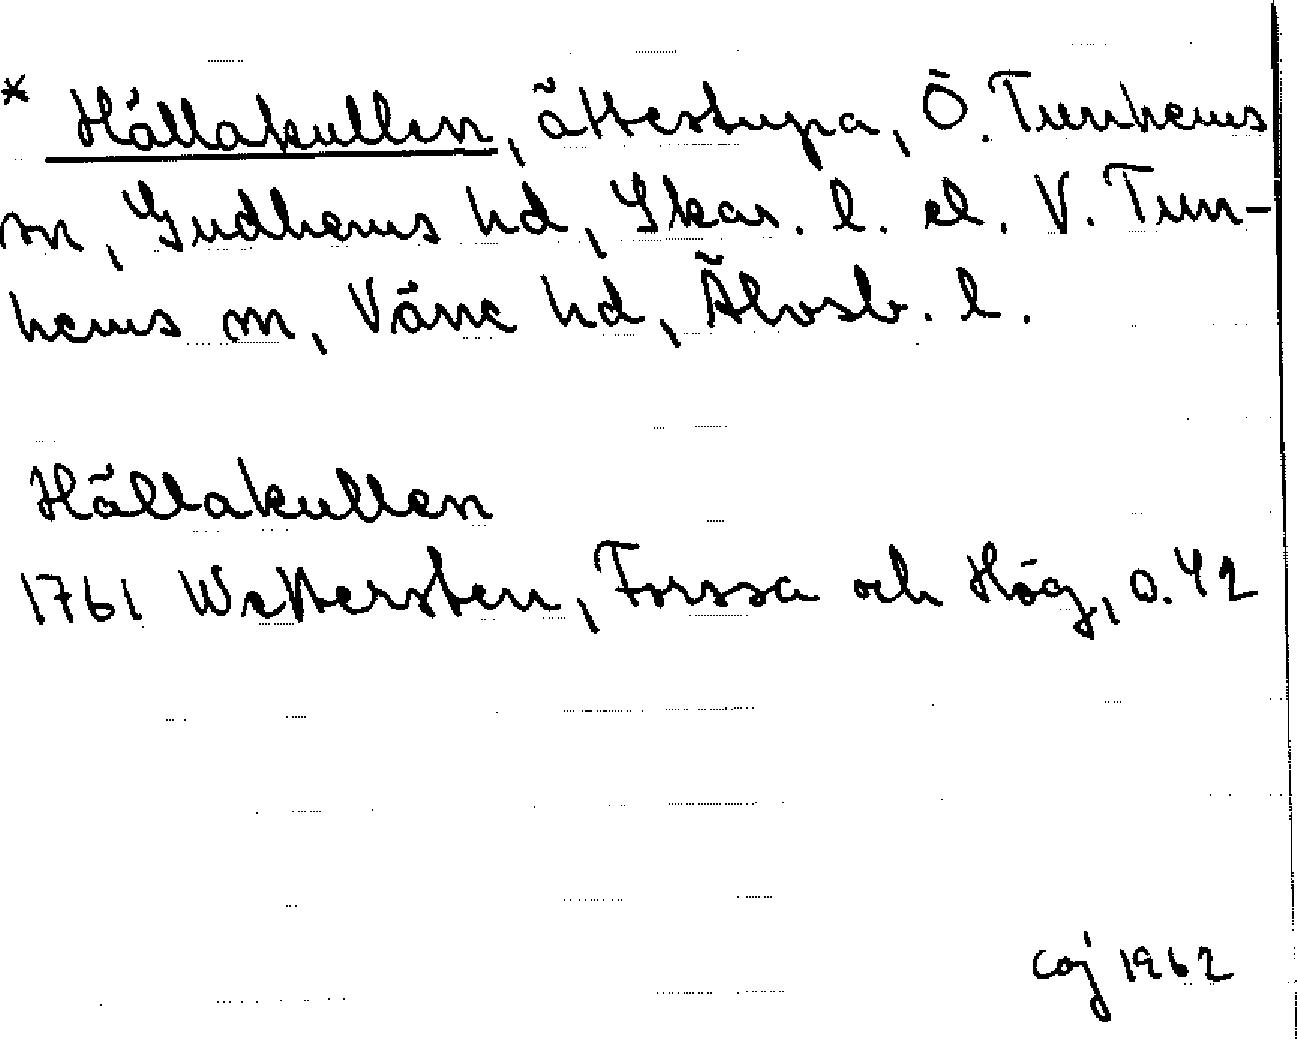 * Hällakullen, ättestupa, Ö. Tunhems
sn, Gudhems hd, Skar. l. el. V. Tun-
hems sn, Väne hd, Älvsb. l.
Hällakullen
1761 Wettersten, Forssa och Hög, s. 42
caj 1962